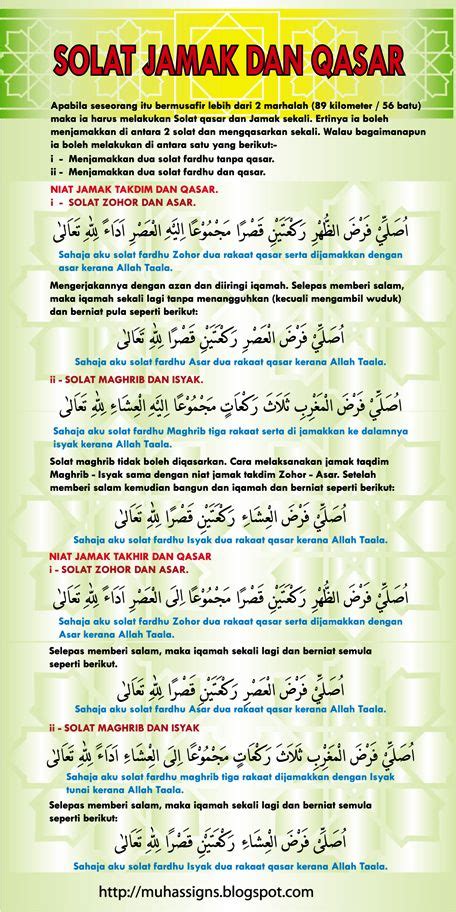 SOLAT JAMAK DAN QASAR
Apabila seseorang itu bermusafir lebih dari 2 marhalah (89 kilometer / 56 batu)
maka ia harus melakukan Solat qasar dan Jamak sekali. Ertinya ia boleh
menjamakkan di antara 2 solat dan mengqasarkan sekali. Walau bagaimanapun
ia boleh melakukan di antara satu yang berikut:-
i - Menjamakkan dua solat fardhu tanpa qasar.
ii - Menjamakkan dua solat fardhu dan qasar.
NIAT JAMAK TAKDIM DAN QASAR.
i - SOLAT ZOHOR DAN ASAR.
اُصَلِّيْ فَرْضَ الظُّهْرِ رَكْعَتَيْنِ قَصْرًا مَجْمُوْعًا اِلَيْهِ الْعَصْرِ اَدَاءً لِلّٰهِ تَعَالٰى
Sahaja aku solat fardhu Zohor dua rakaat qasar serta dijamakkan dengan
asar kerana Allah Taala.
Mengerjakannya dengan azan dan diiringi iqamah. Selepas memberi salam,
maka iqamah sekali lagi tanpa menangguhkan (kecuali mengambil wuduk)
dan berniat pula seperti berikut:
اُصَلِّيْ فَرْضَ الْعَصْرِ رَكْعَتَيْنِ قَصْرًا لِلّٰهِ تَعَالٰى
Sahaja aku solat fardhu Asar dua rakaat qasar kerana Allah Taala.
ii - SOLAT MAGHRIB DAN ISYAK.
اُصَلِّيْ فَرْضَ الْمَغْرِبِ ثَلَاثَ رَكْعَاتٍ مَجْمُوْعًا اِلَيْهِ الْعِشَاءِ لِلّٰهِ تَعَالٰى
Sahaja aku solat fardhu Maghrib tiga rakaat serta di jamakkan ke dalamnya
isyak kerana Allah Taala.
Solat maghrib tidak boleh diqasarkan. Cara melaksanakan jamak taqdim
Maghrib - Isyak sama dengan niat jamak takdim Zohor - Asar. Setelah
memberi salam kemudian bangun dan iqamah dan berniat seperti berikut:
اُصَلِّيْ فَرْضَ الْعِشَاءِ رَكْعَتَيْنِ قَصْرًا لِلّٰهِ تَعَالٰى
Sahaja aku solat fardhu Isyak dua rakaat qasar kerana Allah Taala.
NIAT JAMAK TAKHIR DAN QASAR
i - SOLAT ZOHOR DAN ASAR.
اُصَلِّيْ فَرْضَ الظُّهْرِ رَكْعَتَيْنِ قَصْرًا مَجْمُوْعًا اِلَى الْعَصْرِ اَدَاءً لِلّٰهِ تَعَالٰى
Sahaja aku solat fardhu Zohor dua rakaat qasar serta dijamakkan dengan
Asar kerana Allah Taala.
Selepas memberi salam, maka iqamah sekali lagi dan berniat semula
seperti berikut.
اُصَلِّيْ فَرْضَ الْعَصْرِ رَكْعَتَيْنِ قَصْرًا لِلّٰهِ تَعَالٰى
Sahaja aku solat fardhu Asar dua rakaat qasar kerana Allah Taala.
ii - SOLAT MAGHRIB DAN ISYAK
اُصَلِّيْ فَرْضَ الْمَغْرِبِ ثَلَاثَ رَكْعَاتٍ مَجْمُوْعًا اِلَى الْعِشَاءِ اَدَاءً لِلّٰهِ تَعَالٰى
Sahaja aku solat fardhu maghrib tiga rakaat dijamakkan dengan Isyak
tunai kerana Allah Taala.
Selepas memberi salam, maka iqamah sekali lagi dan berniat semula
seperti berikut:
اُصَلِّيْ فَرْضَ الْعِشَاءِ رَكْعَتَيْنِ قَصْرًا لِلّٰهِ تَعَالٰى
Sahaja aku solat fardhu Isyak dua rakaat qasar kerana Allah Taala.
http://muhassigns.blogspot.com